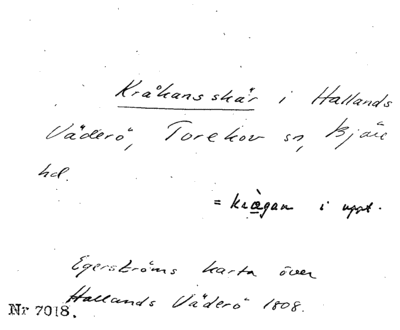 Kråkans skär i Hallands
Väderö, Torekov sn, Bjäre
hd.
= kràgan i uppt.
Egerströms karta över
Hallands Väderö 1808.
Nr 7018.